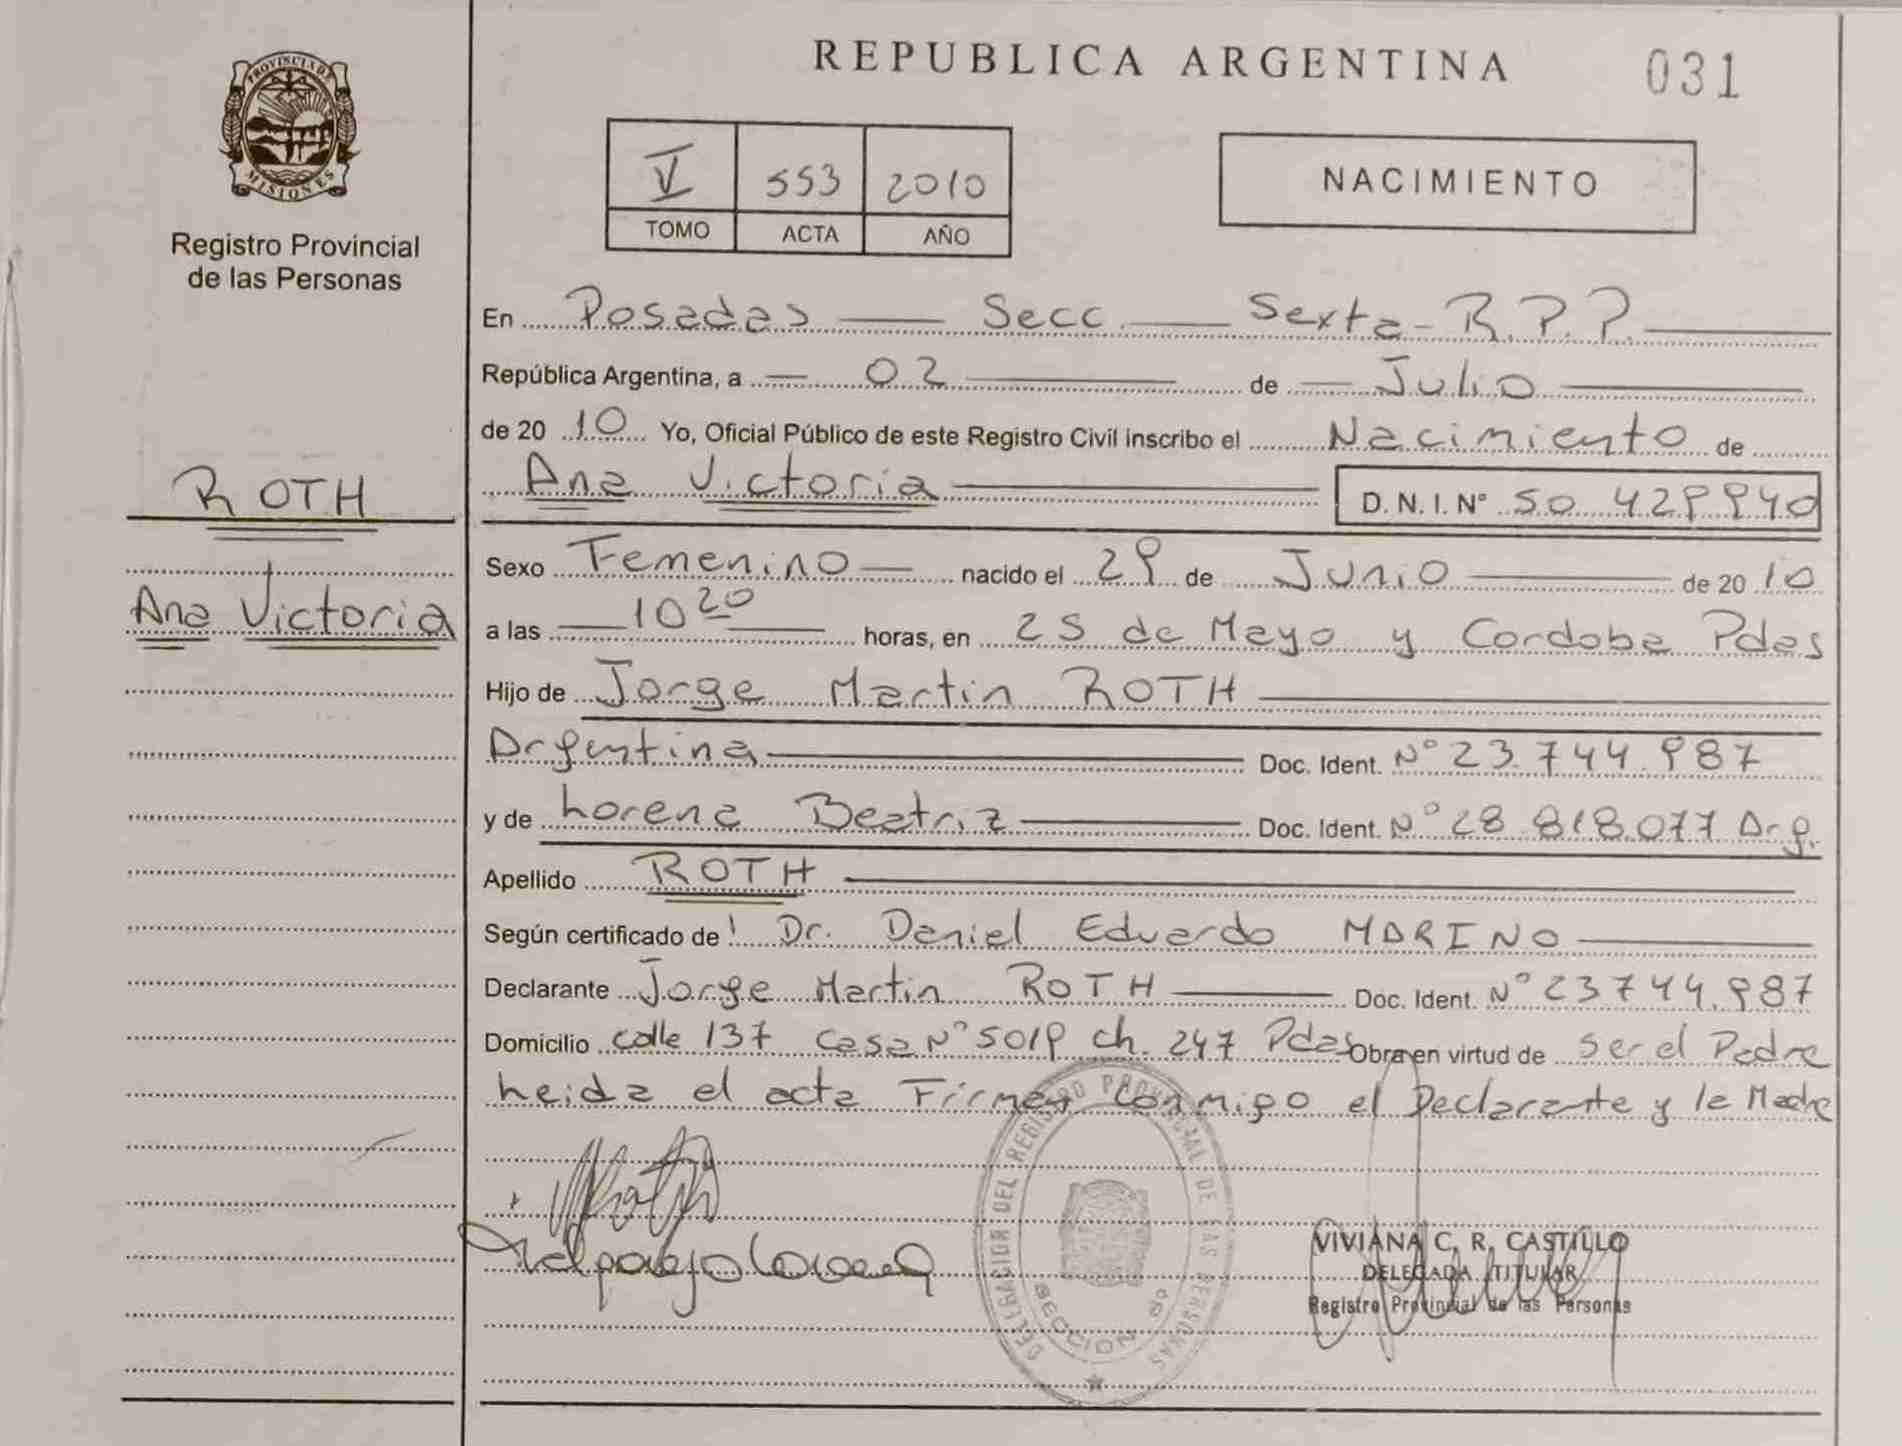 PROVINCIA DE
MISIONES
Registro Provincial
de las Personas
ROTH
Ana Victoria
REPUBLICA ARGENTINA
031
V 553 2010
TOMO ACTA AÑO
NACIMIENTO
En Posadas Secc. Sexta-R.P.P.
República Argentina, a 02 de Julio
de 2010 Yo, Oficial Público de este Registro Civil inscribo el Nacimiento de
Ana Victoria D. N. I. N° 50.429940
Sexo Femenino nacido el 29 de Junio de 2010
a las 10 20 horas, en 25 de Mayo y Cordoba Pdas
Hijo de Jorge Martin ROTH
Argentina Doc. Ident. N° 23.744.987
y de Lorena Beatriz Doc. Ident. N° 28.818.077 Arg.
Apellido ROTH
Según certificado de Dr. Daniel Eduardo MARINO
Declarante Jorge Martin ROTH Doc. Ident. N° 23744.987
Domicilio calle 137 casa N° 5019 ch. 247 Pdas Obra en virtud de ser el Padre
Leida el acta Firman conmigo el Declarante y la Madre
DELEGACION DEL REGISTRO PROVINCIAL DE LAS PERSONAS
SECCION
VIVIANA C. R. CASTILLO
DELEGADA TITULAR
Registro Provincial de las Personas